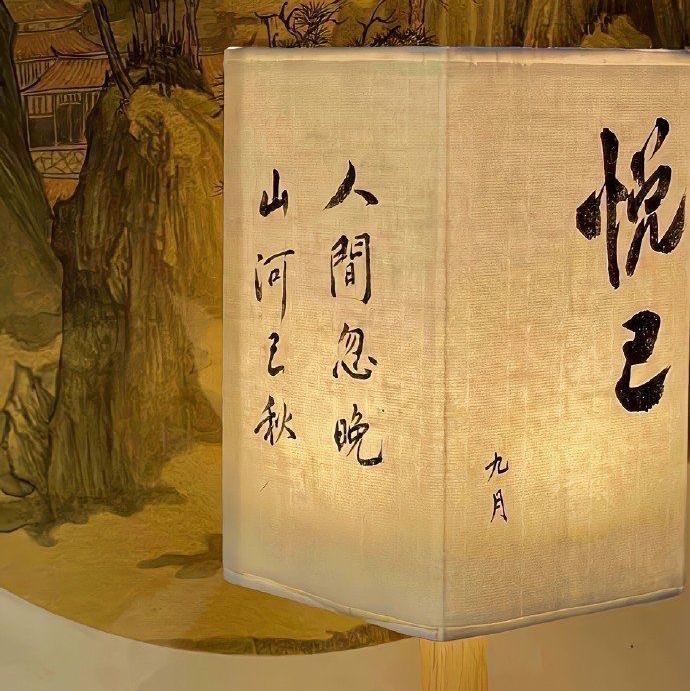 人間忽晚
山河已秋
悦己
九月